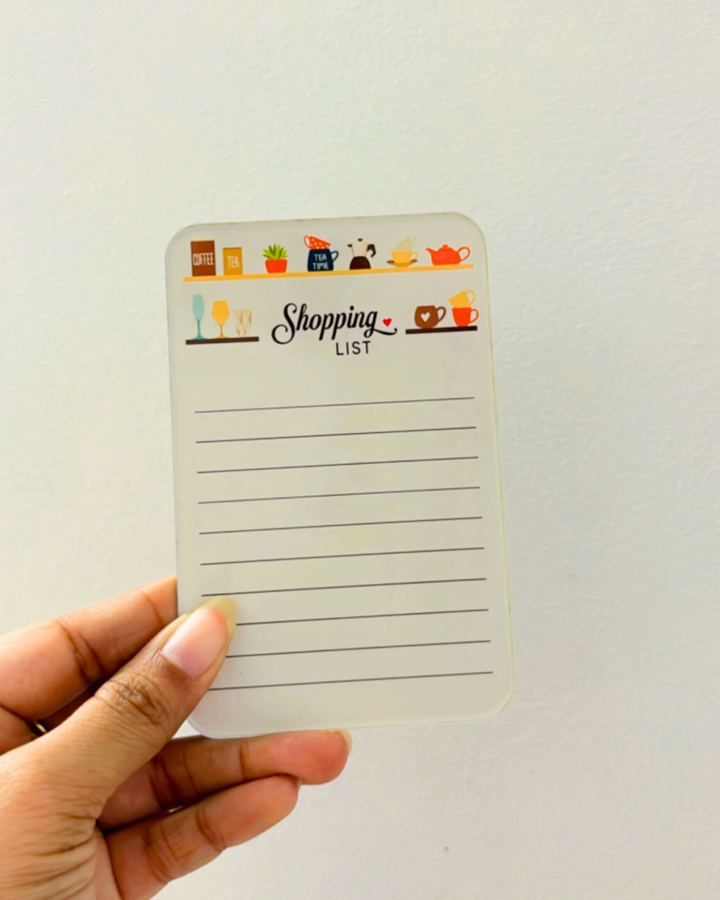 COFFEE
TEA
TEA
TIME
Shopping
LIST